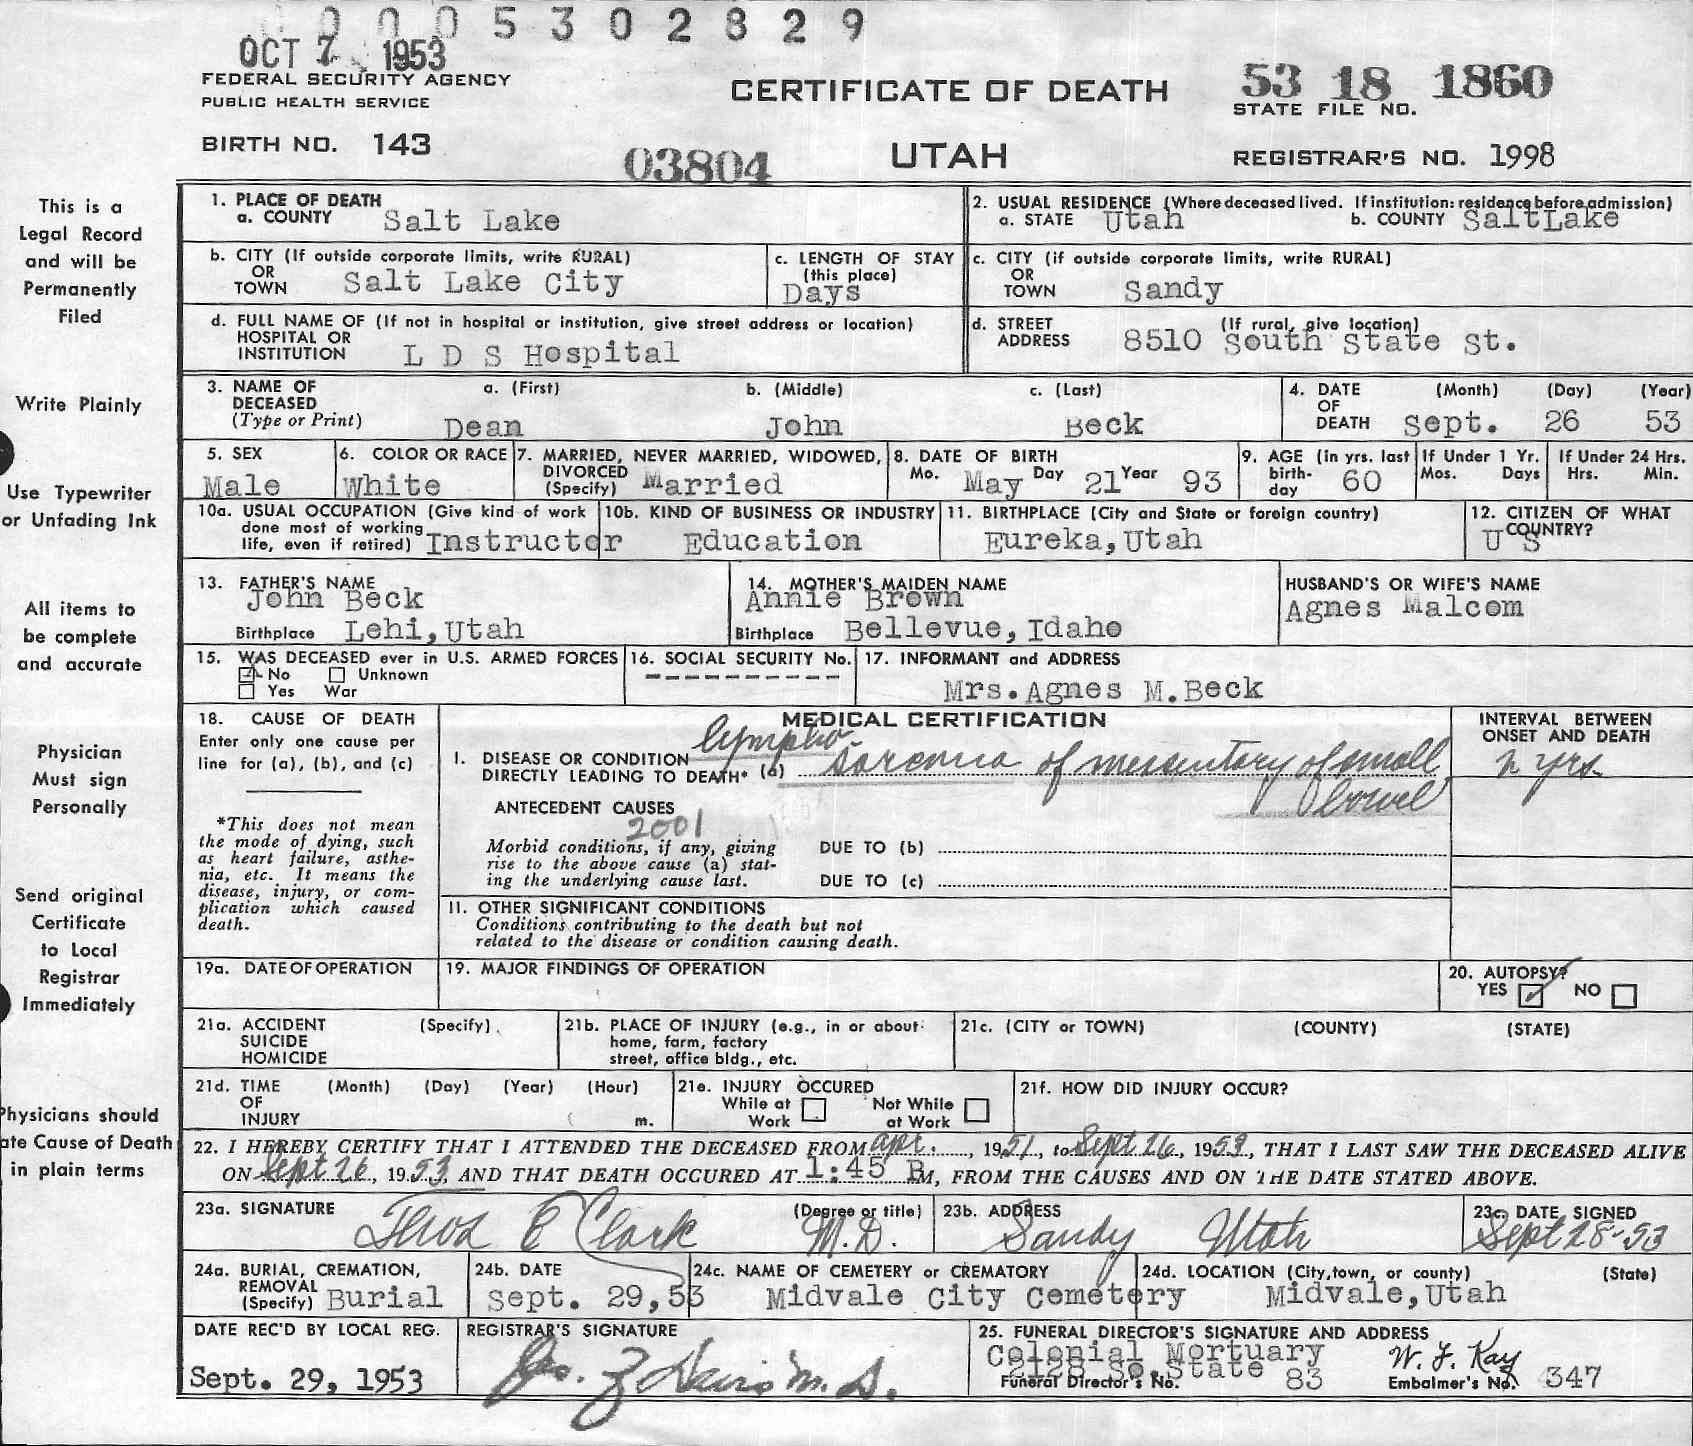 0 0 0 5 3 0 2 8 2 9
OCT 7 1953
FEDERAL SECURITY AGENCY
PUBLIC HEALTH SERVICE
BIRTH NO. 143
CERTIFICATE OF DEATH
03804 UTAH
53 18 1860
STATE FILE NO.
REGISTRAR'S NO. 1998
This is a
Legal Record
and will be
Permanently
Filed
Write Plainly
Use Typewriter
or Unfading Ink
All items to
be complete
and accurate
Physician
Must sign
Personally
Send original
Certificate
to Local
Registrar
Immediately
Physicians should
ate Cause of Death
in plain terms
1. PLACE OF DEATH
a. COUNTY Salt Lake
2. USUAL RESIDENCE (Where deceased lived. If institution: residence before admission)
a. STATE Utah b. COUNTY SaltLake
b. CITY (If outside corporate limits, write RURAL)
OR
TOWN Salt Lake City
c. LENGTH OF STAY
(this place)
Days
c. CITY (if outside corporate limits, write RURAL)
OR
TOWN Sandy
d. FULL NAME OF (If not in hospital or institution, give street address or location)
HOSPITAL OR
INSTITUTION L D S Hospital
d. STREET (If rural, give location)
ADDRESS 8510 South State St.
3. NAME OF a. (First) b. (Middle) c. (Last)
DECEASED
(Type or Print) Dean John Beck
4. DATE (Month) (Day) (Year)
OF
DEATH Sept. 26 53
5. SEX
Male
6. COLOR OR RACE
White
7. MARRIED, NEVER MARRIED, WIDOWED,
DIVORCED
(Specify) Married
8. DATE OF BIRTH
Mo. May Day 21 Year 93
9. AGE (in yrs. last
birth-
day 60
If Under 1 Yr.
Mos. Days
If Under 24 Hrs.
Hrs. Min.
10a. USUAL OCCUPATION (Give kind of work
done most of working
life, even if retired) Instructor
10b. KIND OF BUSINESS OR INDUSTRY
Education
11. BIRTHPLACE (City and State or foreign country)
Eureka, Utah
12. CITIZEN OF WHAT
COUNTRY?
U S
13. FATHER'S NAME
John Beck
Birthplace Lehi, Utah
14. MOTHER'S MAIDEN NAME
Annie Brown
Birthplace Bellevue, Idaho
HUSBAND'S OR WIFE'S NAME
Agnes Malcom
15. WAS DECEASED ever in U.S. ARMED FORCES
No Unknown
Yes War
16. SOCIAL SECURITY No.
----------
17. INFORMANT and ADDRESS
Mrs. Agnes M. Beck
18. CAUSE OF DEATH
Enter only one cause per
line for (a), (b), and (c)
*This does not mean
the mode of dying, such
as heart failure, asthe-
nia, etc. It means the
disease, injury, or com-
plication which caused
death.
MEDICAL CERTIFICATION
I. DISEASE OR CONDITION lympho
DIRECTLY LEADING TO DEATH* (a) sarcoma of mesentary of small
bowel
ANTECEDENT CAUSES
2001
Morbid conditions, if any, giving
rise to the above cause (a) stat-
ing the underlying cause last.
DUE TO (b)
DUE TO (c)
II. OTHER SIGNIFICANT CONDITIONS
Conditions contributing to the death but not
related to the disease or condition causing death.
INTERVAL BETWEEN
ONSET AND DEATH
2 yrs.
19a. DATE OF OPERATION
19. MAJOR FINDINGS OF OPERATION
20. AUTOPSY?
YES NO
21a. ACCIDENT (Specify)
SUICIDE
HOMICIDE
21b. PLACE OF INJURY (e.g., in or about
home, farm, factory
street, office bldg., etc.
21c. (CITY or TOWN) (COUNTY) (STATE)
21d. TIME (Month) (Day) (Year) (Hour)
OF
INJURY m.
21e. INJURY OCCURED
While at Work Not While at Work
21f. HOW DID INJURY OCCUR?
22. I HEREBY CERTIFY THAT I ATTENDED THE DECEASED FROM apr. , 1951, to Sept 26, 1953, THAT I LAST SAW THE DECEASED ALIVE
ON Sept 26, 1953, AND THAT DEATH OCCURED AT 1:45 P M, FROM THE CAUSES AND ON THE DATE STATED ABOVE.
23a. SIGNATURE (Degree or title)
Thos E Clark M.D.
23b. ADDRESS
Sandy Utah
23c. DATE SIGNED
Sept 28-53
24a. BURIAL, CREMATION,
REMOVAL
(Specify) Burial
24b. DATE
Sept. 29, 53
24c. NAME OF CEMETERY or CREMATORY
Midvale City Cemetery
24d. LOCATION (City, town, or county) (State)
Midvale, Utah
DATE REC'D BY LOCAL REG.
Sept. 29, 1953
REGISTRAR'S SIGNATURE
M.D.
25. FUNERAL DIRECTOR'S SIGNATURE AND ADDRESS
Colonial Mortuary W. J. Kay
2128 So. State
Funeral Director's No. 83 Embalmer's No. 347